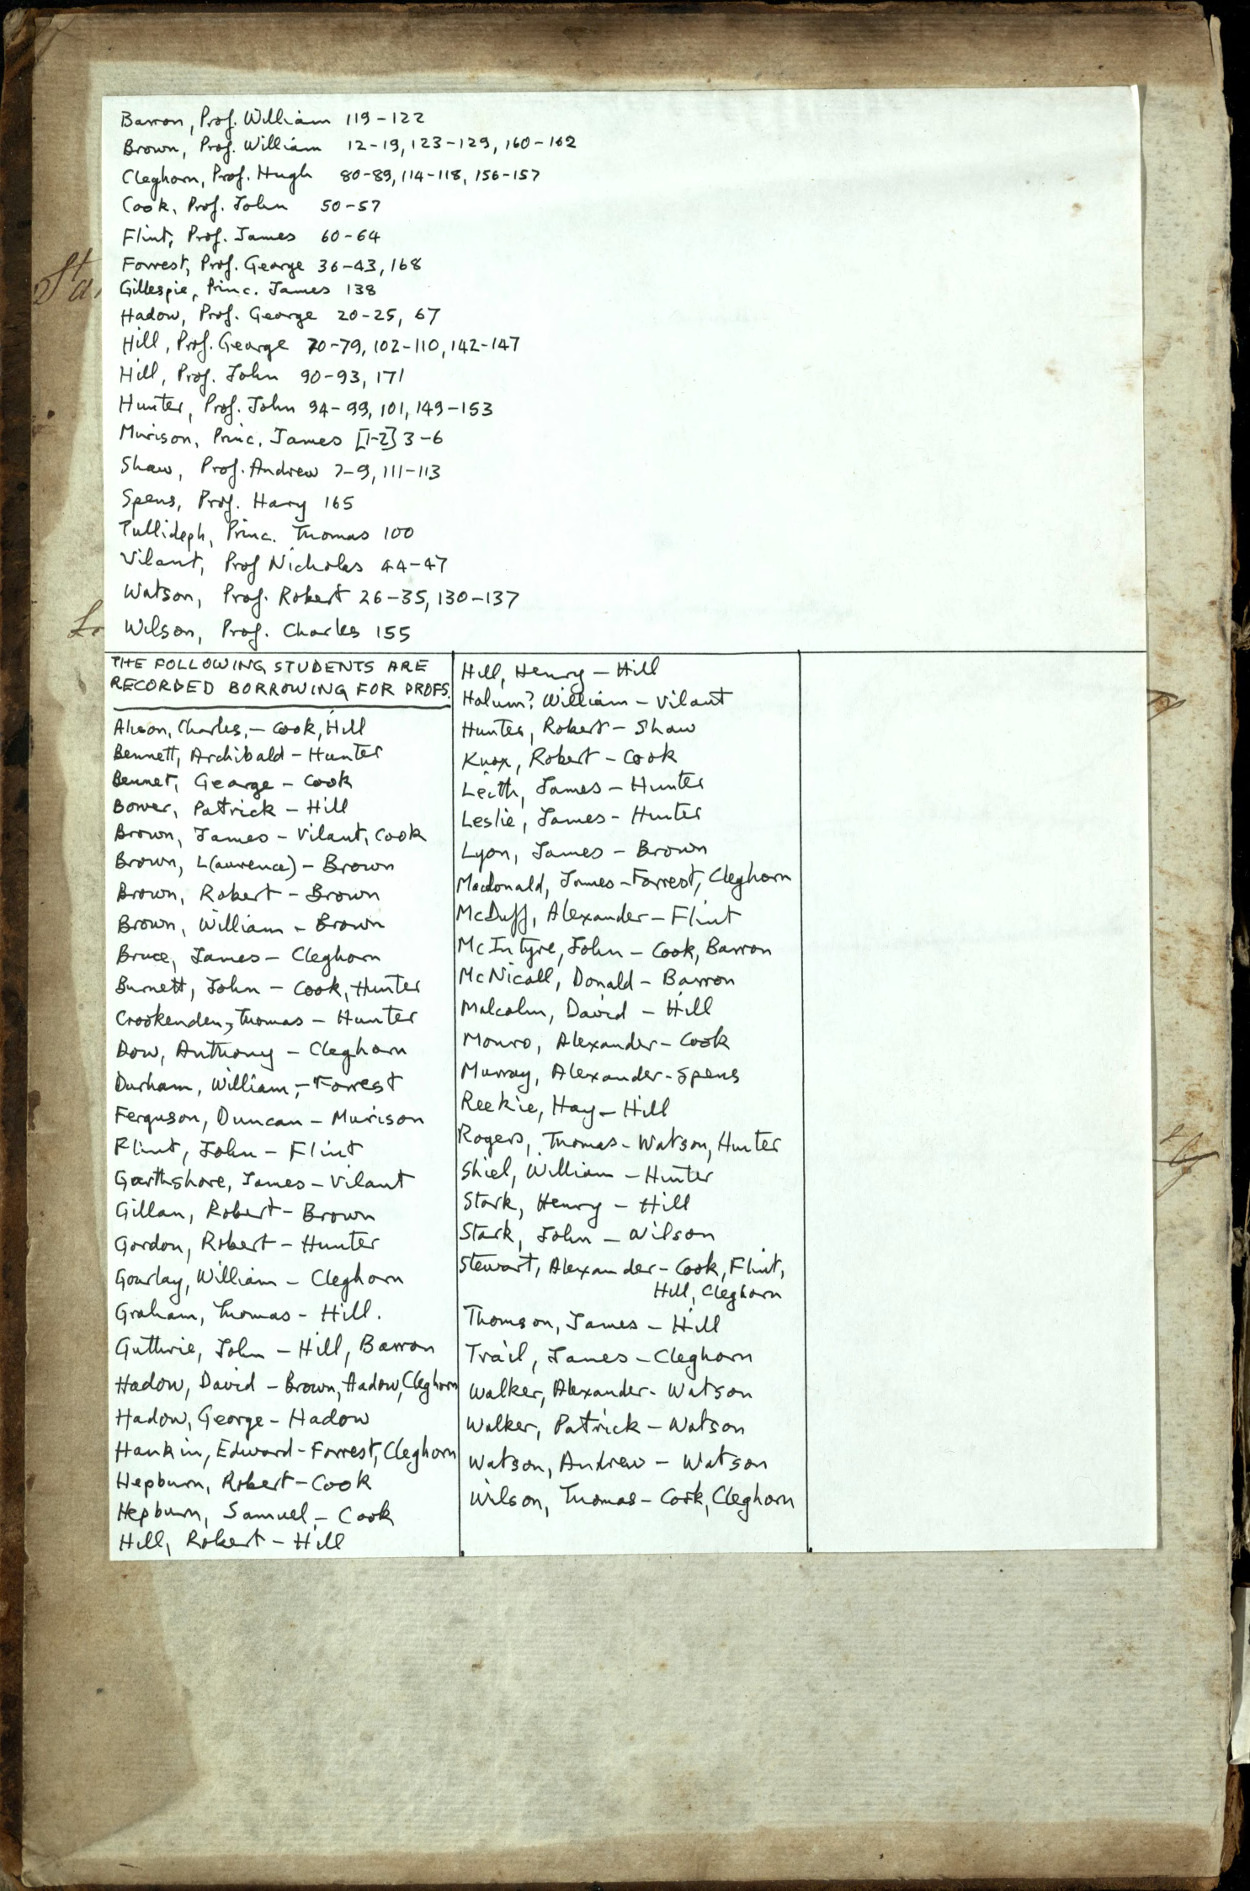 Barron, Prof. William 119-122
Brown, Prof. William 12-19, 123-129, 160-162
Cleghorn, Prof. Hugh 80-89, 114-118, 156-157
Cook, Prof. John 50-57
Flint, Prof. James 60-64
Forrest, Prof. George 36-43, 168
Gillespie, Princ. James 138
Hadow, Prof. George 20-25, 67
Hill, Prof. George 70-79, 102-110, 142-147
Hill, Prof. John 90-93, 171
Hunter, Prof. John 94-99, 101, 149-153
Murison, Princ. James [1-2] 3-6
Shaw, Prof. Andrew 7-9, 111-113
Spens, Prof. Harry 165
Tullideph, Princ. Thomas 100
Vilant, Prof Nicholas 44-47
Watson, Prof. Robert 26-35, 130-137
Wilson, Prof. Charles 155
THE FOLLOWING STUDENTS ARE
RECORDED BORROWING FOR PROFS.
Alison, Charles, - Cook, Hill
Bennett, Archibald - Hunter
Bennet, George - Cook
Bower, Patrick - Hill
Brown, James - Vilant, Cook
Brown, L(aurence) - Brown
Brown, Robert - Brown
Brown, William - Brown
Bruce, James - Cleghorn
Burnett, John - Cook, Hunter
Crookenden, Thomas - Hunter
Dow, Anthony - Cleghorn
Durham, William, - Forrest
Ferguson, Duncan - Murison
Flint, John - Flint
Garthshore, James - Vilant
Gillan, Robert - Brown
Gordon, Robert - Hunter
Gourlay, William - Cleghorn
Graham, Thomas - Hill.
Guthrie, John - Hill, Barron
Hadow, David - Brown, Hadow, Cleghorn
Hadow, George - Hadow
Hankin, Edward - Forrest, Cleghorn
Hepburn, Robert - Cook
Hepburn, Samuel, - Cook
Hill, Robert - Hill
Hill, Henry - Hill
Holum? William - Vilant
Hunter, Robert - Shaw
Knox, Robert - Cook
Leith, James - Hunter
Leslie, James - Hunter
Lyon, James - Brown
Macdonald, James - Forrest, Cleghorn
McDuff, Alexander - Flint
McIntyre, John - Cook, Barron
McNicall, Donald - Barron
Malcolm, David - Hill
Monro, Alexander - Cook
Murray, Alexander - Spens
Reekie, Hay - Hill
Rogers, Thomas - Watson, Hunter
Shiel, William - Hunter
Stark, Henry - Hill
Stark, John - Wilson
Stewart, Alexander - Cook, Flint,
Hill, Cleghorn
Thomson, James - Hill
Trail, James - Cleghorn
Walker, Alexander - Watson
Walker, Patrick - Watson
Watson, Andrew - Watson
Wilson, Thomas - Cook, Cleghorn